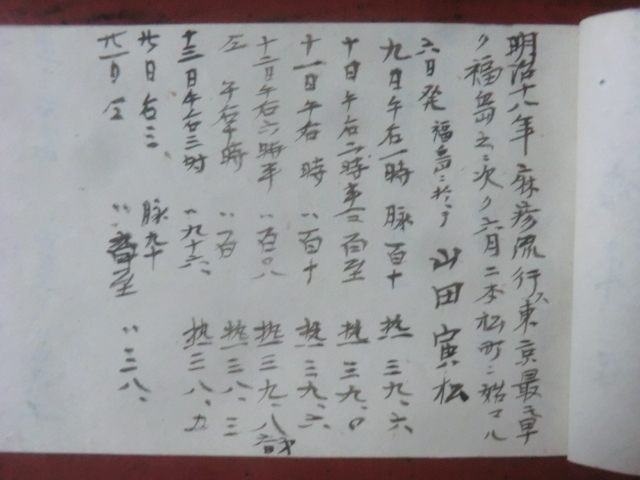 明治十八年麻疹流行ス東京最モ早
ク福島之ニ次ク六月二本松町ニ始マル
六日発 福島ニ於テ 山田寅松
九日午后一時 脉百十 熱三九、六
十日午后二時半 百至 熱三九、〇
十一日午右 時 〃百十 熱三九、六
十二日午右六時半 〃百〇八 熱三九、八
仝 午右 時 〃百 熱三八、三
十三日午右三时 〃九十六、 熱三八、九
廿日右三、 脉九十
廿一日仝 〃 至 〃三八、